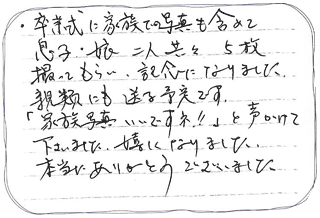 ・卒業式に家族での写真も含めて
息子・娘 二人共々 5枚
撮ってもらい、記念になりました。
親類にも送る予定です。
「家族写真いいですネ!!」と声かけて
下さいました。嬉しくなりました。
本当にありがとうございました。